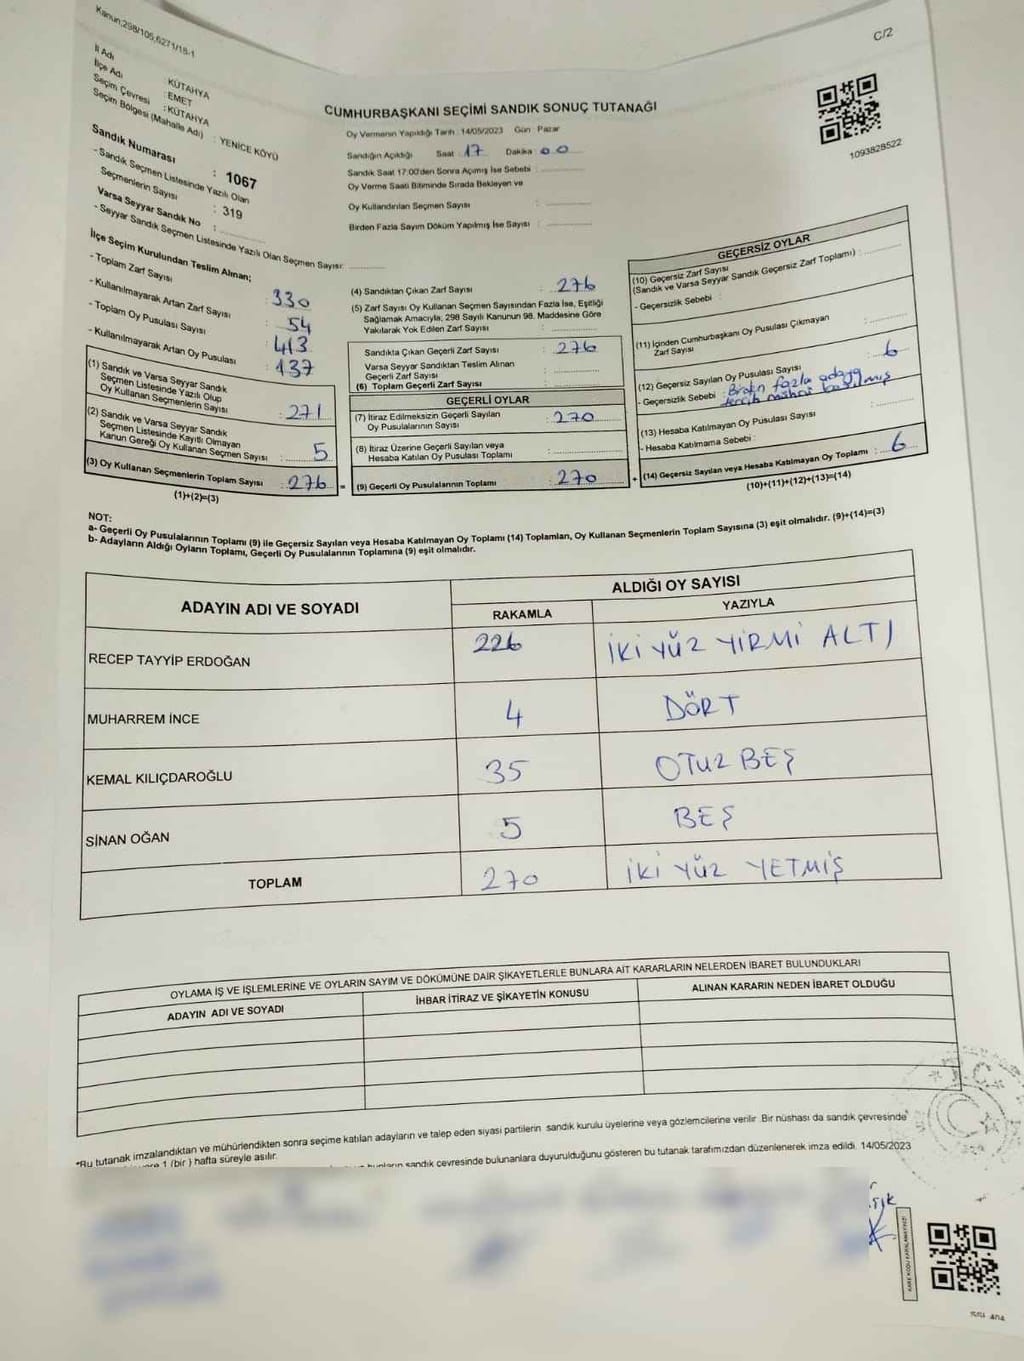 Kanun;298/105,6271/18-1
C/2
İl Adı : KÜTAHYA
İlçe Adı : EMET
Seçim Çevresi : KÜTAHYA
Seçim Bölgesi (Mahalle Adı) : YENİCE KÖYÜ
Sandık Numarası : 1067
- Sandık Seçmen Listesinde Yazılı Olan
Seçmenlerin Sayısı : 319
Varsa Seyyar Sandık No :
- Seyyar Sandık Seçmen Listesinde Yazılı Olan Seçmen Sayısı:
CUMHURBAŞKANI SEÇİMİ SANDIK SONUÇ TUTANAĞI
Oy Vermenin Yapıldığı Tarih : 14/05/2023 Gün Pazar
Sandığın Açıldığı Saat : 17 Dakika : 00
Sandık Saat 17:00'den Sonra Açımış İse Sebebi :
Oy Verme Saati Bitiminde Sırada Bekleyen ve
Oy Kullandırılan Seçmen Sayısı :
Birden Fazla Sayım Döküm Yapılmış İse Sayısı :
1093828522
İlçe Seçim Kurulundan Teslim Alınan;
- Toplam Zarf Sayısı : 330
- Kullanılmayarak Artan Zarf Sayısı : 54
- Toplam Oy Pusulası Sayısı : 413
- Kullanılmayarak Artan Oy Pusulası : 137
(1) Sandık ve Varsa Seyyar Sandık
Seçmen Listesinde Yazılı Olup
Oy Kullanan Seçmenlerin Sayısı : 271
(2) Sandık ve Varsa Seyyar Sandık
Seçmen Listesinde Kayıtlı Olmayan
Kanun Gereği Oy Kullanan Seçmen Sayısı : 5
(3) Oy Kullanan Seçmenlerin Toplam Sayısı : 276
(1)+(2)=(3)
(4) Sandıktan Çıkan Zarf Sayısı : 276
(5) Zarf Sayısı Oy Kullanan Seçmen Sayısından Fazla İse, Eşitliği
Sağlamak Amacıyla; 298 Sayılı Kanunun 98. Maddesine Göre
Yakılarak Yok Edilen Zarf Sayısı :
Sandıkta Çıkan Geçerli Zarf Sayısı : 276
Varsa Seyyar Sandıktan Teslim Alınan
Geçerli Zarf Sayısı :
(6) Toplam Geçerli Zarf Sayısı :
GEÇERLİ OYLAR
(7) İtiraz Edilmeksizin Geçerli Sayılan
Oy Pusulasının Sayısı : 270
(8) İtiraz Üzerine Geçerli Sayılan veya
Hesaba Katılan Oy Pusulası Toplamı :
= (9) Geçerli Oy Pusulalarının Toplamı : 270
GEÇERSİZ OYLAR
(10) Geçersiz Zarf Sayısı
(Sandık ve Varsa Seyyar Sandık Geçersiz Zarf Toplamı) :
- Geçersizlik Sebebi :
(11) İçinden Cumhurbaşkanı Oy Pusulası Çıkmayan
Zarf Sayısı :
(12) Geçersiz Sayılan Oy Pusulası Sayısı : 6
- Geçersizlik Sebebi : Birden fazla adaya
tercih mührü basılmış
(13) Hesaba Katılmayan Oy Pusulası Sayısı :
- Hesaba Katılmama Sebebi :
+ (14) Geçersiz Sayılan veya Hesaba Katılmayan Oy Toplamı : 6
(10)+(11)+(12)+(13)=(14)
NOT:
a- Geçerli Oy Pusulalarının Toplamı (9) ile Geçersiz Sayılan veya Hesaba Katılmayan Oy Toplamı (14) Toplamları, Oy Kullanan Seçmenlerin Toplam Sayısına (3) eşit olmalıdır. (9)+(14)=(3)
b- Adayların Aldığı Oyların Toplamı, Geçerli Oy Pusulalarının Toplamına (9) eşit olmalıdır.
ADAYIN ADI VE SOYADI
ALDIĞI OY SAYISI
RAKAMLA YAZIYLA
RECEP TAYYİP ERDOĞAN 226 İKİ YÜZ YİRMİ ALTI
MUHARREM İNCE 4 DÖRT
KEMAL KILIÇDAROĞLU 35 OTUZ BEŞ
SİNAN OĞAN 5 BEŞ
TOPLAM 270 İKİ YÜZ YETMİŞ
OYLAMA İŞ VE İŞLEMLERİNE VE OYLARIN SAYIM VE DÖKÜMÜNE DAİR ŞİKAYETLERLE BUNLARA AİT KARARLARIN NELERDEN İBARET BULUNDUKLARI
ADAYIN ADI VE SOYADI İHBAR İTİRAZ VE ŞİKAYETİN KONUSU ALINAN KARARIN NEDEN İBARET OLDUĞU
*Bu tutanak imzalandıktan ve mühürlendikten sonra seçime katılan adayların ve talep eden siyasi partilerin sandık kurulu üyelerine veya gözlemcilerine verilir. Bir nüshası da sandık çevresinde
1 (bir) hafta süreyle asılır.
sandık çevresinde bulunanlara duyurulduğunu gösteren bu tutanak tarafımızdan düzenlenerek imza edildi. 14/05/2023